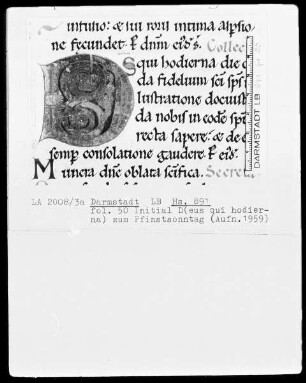 ne fecundet. P dnm eiusdē. Collecta
S qui hodierna die
da fidelium sci spi
lustratione docuisti
da nobis in eodē spu
recta sapere. & de
semp consolatione gaudere. P eiusdē.
Munera dne oblata scifica. Secreta
DARMSTADT LB
LA 2008/3a Darmstadt LB Hs. 891
fol. 50 Initial D(eus qui hodier-
na) zum Pfinstsonntag (Aufn.1959)